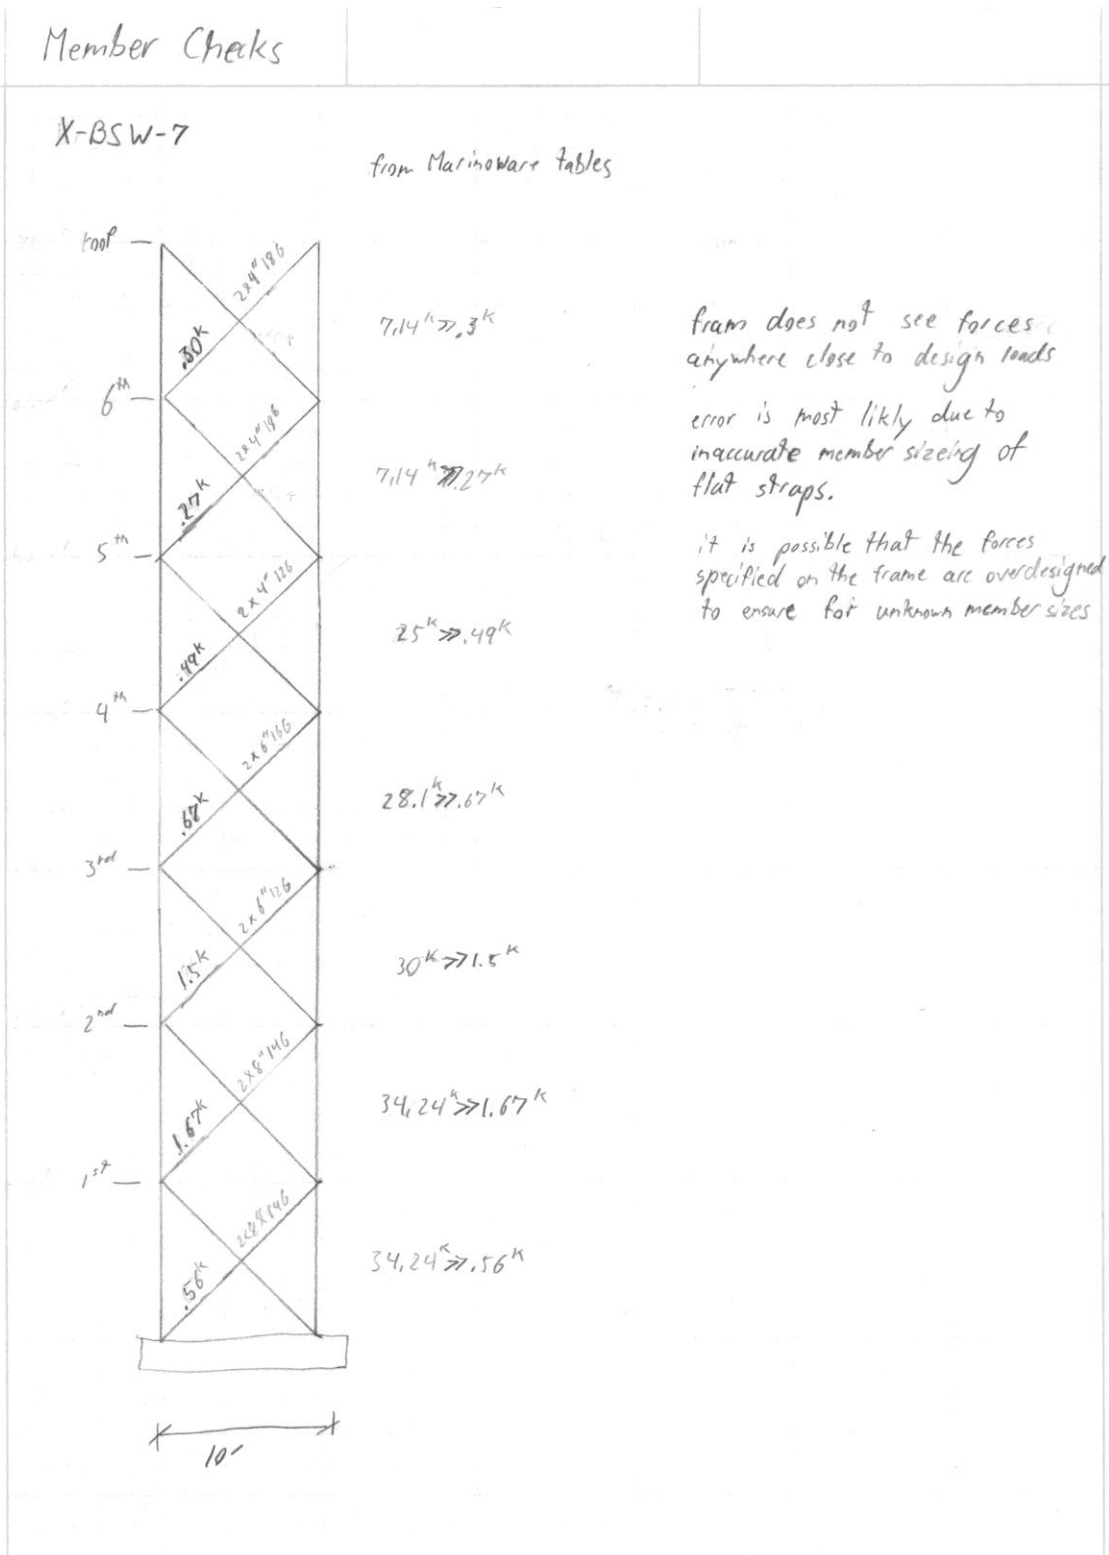 Member Checks
X-BSW-7
from Marinoware tables
roof
2x4" 18G
.30k
7.14k >> .3k
6th
2x4" 18G
.27k
7.14k >> .27k
5th
2x4" 12G
.49k
25k >> .49k
4th
2x6" 16G
.67k
28.1k >> .67k
3rd
2x6" 12G
1.5k
30k >> 1.5k
2nd
2x8" 14G
1.67k
34.24k >> 1.67k
1st
2x8" 14G
.56k
34.24k >> .56k
10'
fram does not see forces
anywhere close to design loads
error is most likly due to
inaccurate member sizeing of
flat straps.
it is possible that the forces
specified on the frame are overdesigned
to ensure for unknown member sizes